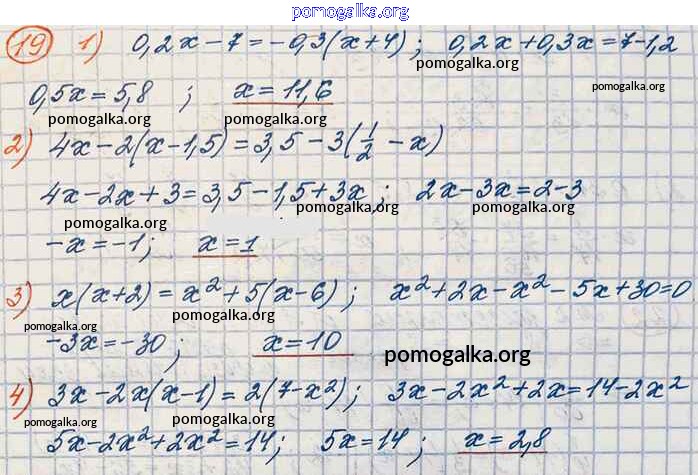 pomogalka.org
19 1) 0,2x-7=-0,3(x+4); 0,2x+0,3x=7-1,2
pomogalka.org pomogalka.org
0,5x=5,8 ; x=11,6
pomogalka.org pomogalka.org
2) 4x-2(x-1,5)=3,5-3(1/2-x)
4x-2x+3=3,5-1,5+3x; 2x-3x=2-3
pomogalka.org pomogalka.org pomogalka.org
-x=-1; x=1
3) x(x+2)=x²+5(x-6); x²+2x-x²-5x+30=0
pomogalka.org pomogalka.org
-3x=-30; x=10
pomogalka.org pomogalka.org
4) 3x-2x(x-1)=2(7-x²); 3x-2x²+2x=14-2x²
pomogalka.org pomogalka.org pomogalka.org
5x-2x²+2x²=14; 5x=14; x=2,8